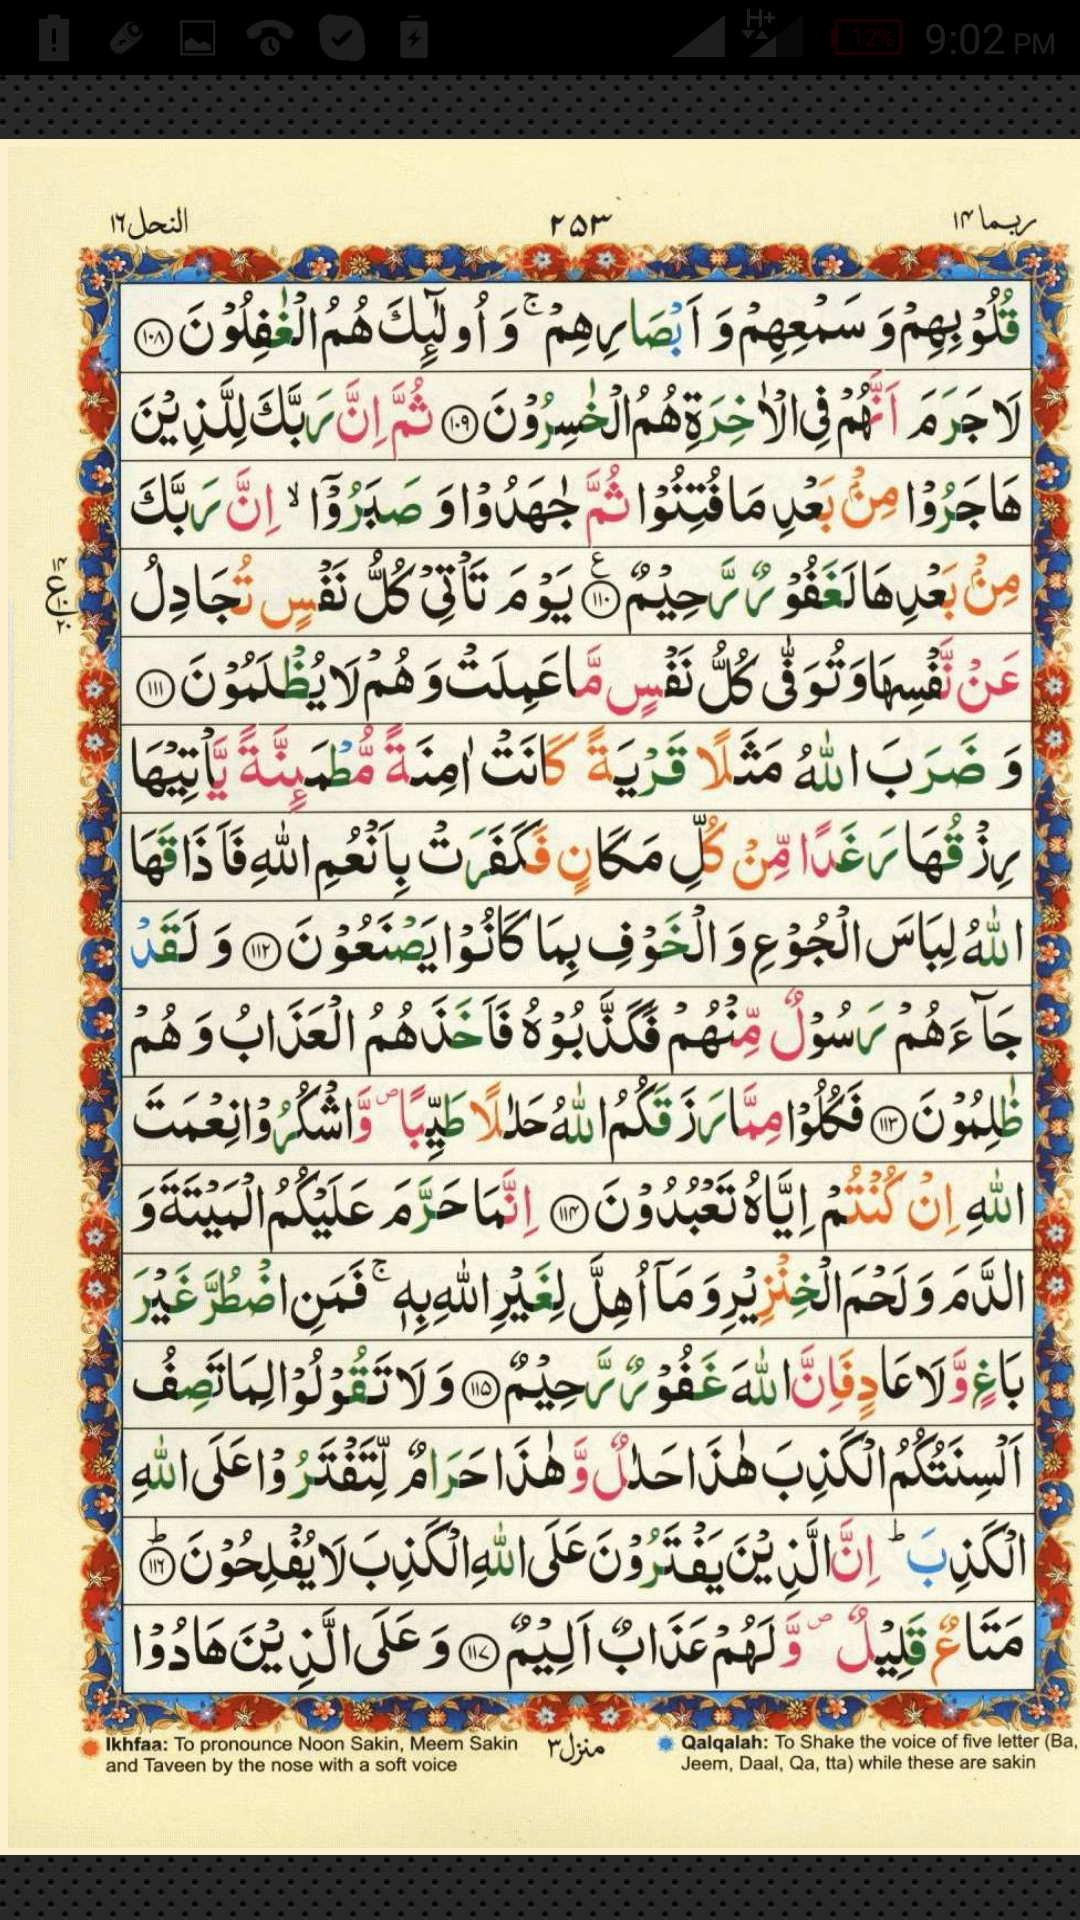 12% 9:02 PM
H+
النحل ١٦ ٢٥٣ ربما ١٤
قُلُوْبِهِمْ وَ سَمْعِهِمْ وَ اَبْصَارِهِمْ ۚ وَ اُولٰٓئِكَ هُمُ الْغٰفِلُوْنَ ﴿۱۰۸﴾
لَا جَرَمَ اَنَّهُمْ فِی الْاٰخِرَةِ هُمُ الْخٰسِرُوْنَ ﴿۱۰۹﴾ ثُمَّ اِنَّ رَبَّكَ لِلَّذِیْنَ
هَاجَرُوْا مِنْۢ بَعْدِ مَا فُتِنُوْا ثُمَّ جٰهَدُوْا وَ صَبَرُوْۤا ۙ اِنَّ رَبَّكَ
مِنْۢ بَعْدِهَا لَغَفُوْرٌ رَّحِیْمٌ ﴿۱۱۰﴾ ع یَوْمَ تَاْتِیْ كُلُّ نَفْسٍ تُجَادِلُ
١٤
ع
١٠
٢٠
عَنْ نَّفْسِهَا وَ تُوَفّٰی كُلُّ نَفْسٍ مَّا عَمِلَتْ وَ هُمْ لَا یُظْلَمُوْنَ ﴿۱۱۱﴾
وَ ضَرَبَ اللّٰهُ مَثَلًا قَرْیَةً كَانَتْ اٰمِنَةً مُّطْمَىِٕنَّةً یَّاْتِیْهَا
رِزْقُهَا رَغَدًا مِّنْ كُلِّ مَكَانٍ فَكَفَرَتْ بِاَنْعُمِ اللّٰهِ فَاَذَاقَهَا
اللّٰهُ لِبَاسَ الْجُوْعِ وَ الْخَوْفِ بِمَا كَانُوْا یَصْنَعُوْنَ ﴿۱۱۲﴾ وَ لَقَدْ
جَآءَهُمْ رَسُوْلٌ مِّنْهُمْ فَكَذَّبُوْهُ فَاَخَذَهُمُ الْعَذَابُ وَ هُمْ
ظٰلِمُوْنَ ﴿۱۱۳﴾ فَكُلُوْا مِمَّا رَزَقَكُمُ اللّٰهُ حَلٰلًا طَیِّبًا ۪ وَّ اشْكُرُوْا نِعْمَتَ
اللّٰهِ اِنْ كُنْتُمْ اِیَّاهُ تَعْبُدُوْنَ ﴿۱۱۴﴾ اِنَّمَا حَرَّمَ عَلَیْكُمُ الْمَیْتَةَ وَ
الدَّمَ وَ لَحْمَ الْخِنْزِیْرِ وَ مَاۤ اُهِلَّ لِغَیْرِ اللّٰهِ بِهٖ ۚ فَمَنِ اضْطُرَّ غَیْرَ
بَاغٍ وَّ لَا عَادٍ فَاِنَّ اللّٰهَ غَفُوْرٌ رَّحِیْمٌ ﴿۱۱۵﴾ وَ لَا تَقُوْلُوْا لِمَا تَصِفُ
اَلْسِنَتُكُمُ الْكَذِبَ هٰذَا حَلٰلٌ وَّ هٰذَا حَرَامٌ لِّتَفْتَرُوْا عَلَی اللّٰهِ
الْكَذِبَ ؕ اِنَّ الَّذِیْنَ یَفْتَرُوْنَ عَلَی اللّٰهِ الْكَذِبَ لَا یُفْلِحُوْنَ ﴿۱۱۶﴾ؕ
مَتَاعٌ قَلِیْلٌ ۪ وَّ لَهُمْ عَذَابٌ اَلِیْمٌ ﴿۱۱۷﴾ وَ عَلَی الَّذِیْنَ هَادُوْا
Ikhfaa: To pronounce Noon Sakin, Meem Sakin
and Taveen by the nose with a soft voice
منزل ٣
Qalqalah: To Shake the voice of five letter (Ba,
Jeem, Daal, Qa, tta) while these are sakin